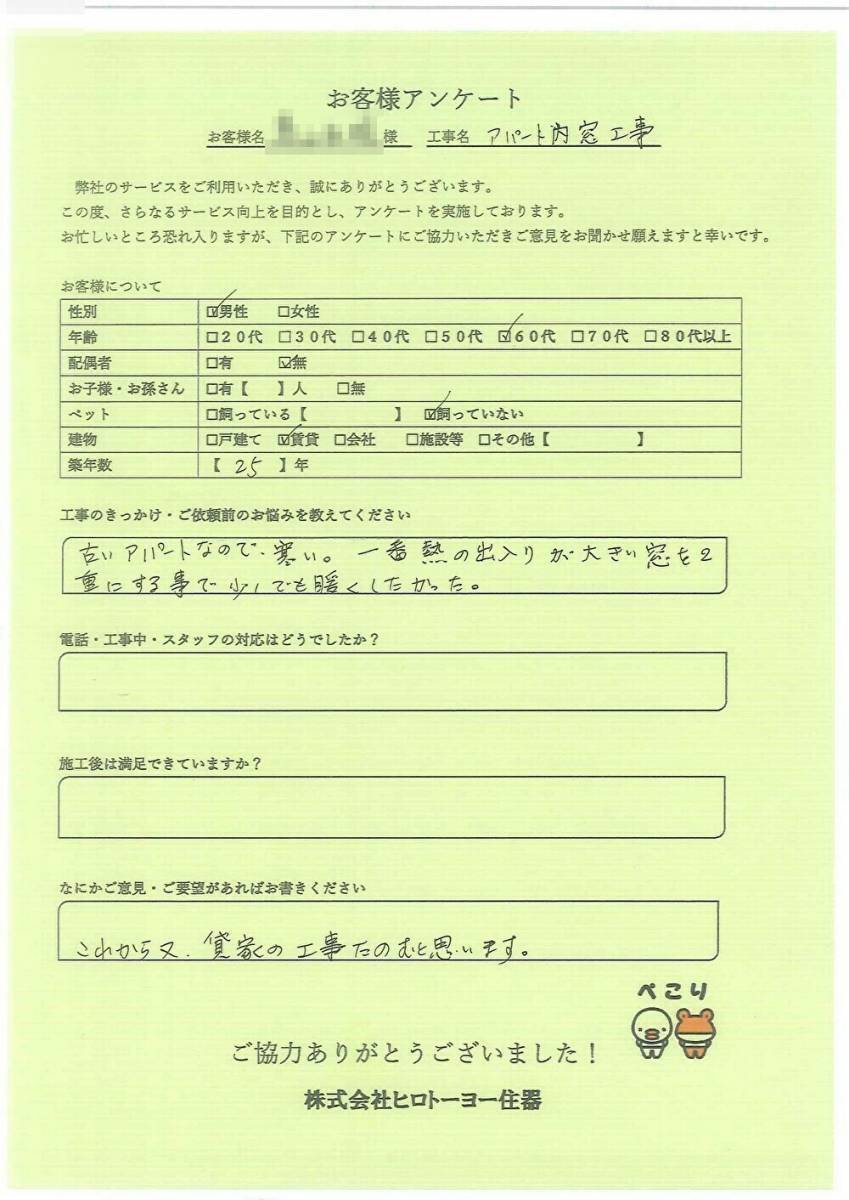 お客様アンケート
お客様名 様 工事名 アパート内窓工事
弊社のサービスをご利用いただき、誠にありがとうございます。
この度、さらなるサービス向上を目的とし、アンケートを実施しております。
お忙しいところ恐れ入りますが、下記のアンケートにご協力いただきご意見をお聞かせ願えますと幸いです。
お客様について
性別 ☑男性 □女性
年齢 □20代 □30代 □40代 □50代 ☑60代 □70代 □80代以上
配偶者 □有 ☑無
お子様・お孫さん □有【 】人 □無
ペット □飼っている【 】 ☑飼っていない
建物 □戸建て ☑賃貸 □会社 □施設等 □その他【 】
築年数 【 25 】年
工事のきっかけ・ご依頼前のお悩みを教えてください
古いアパートなので、寒い。一番熱の出入りが大きい窓を2
重にする事で少しでも暖くしたかった。
電話・工事中・スタッフの対応はどうでしたか？
施工後は満足できていますか？
なにかご意見・ご要望があればお書きください
これから又、貸家の工事たのむと思います。
ぺこり
ご協力ありがとうございました！
株式会社ヒロトーヨー住器